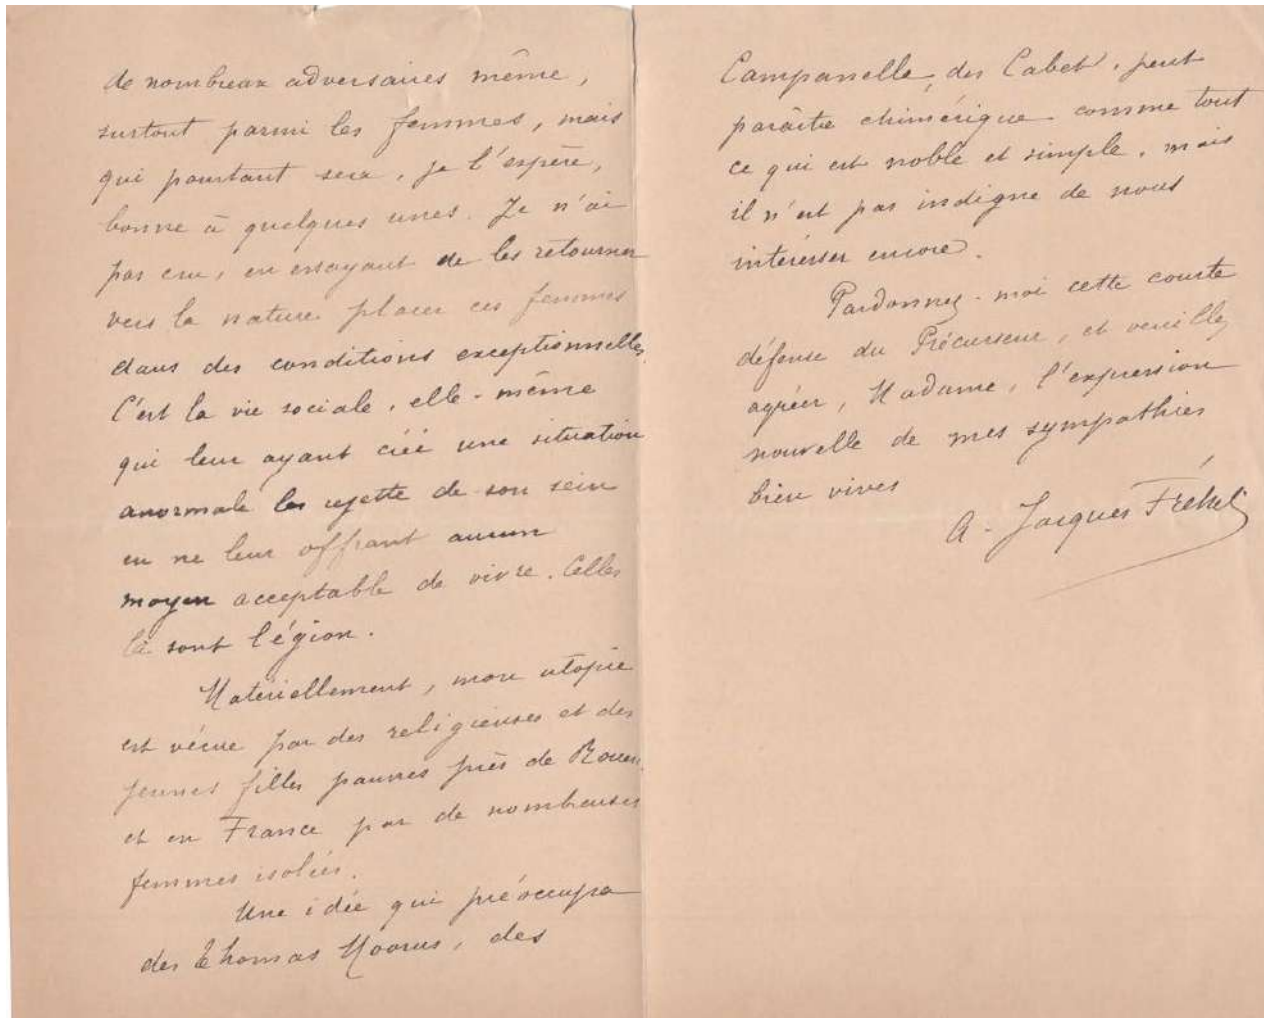 de nombreux adversaires même,
surtout parmi les femmes, mais
qui pourtant sera, je l'espère,
bonne à quelques unes. Je n'ai
pas cru, en essayant de les retourner
vers la nature placer ces femmes
dans des conditions exceptionnelles.
C'est la vie sociale, elle-même
qui leur ayant créé une situation
anormale les rejette de son sein
en ne leur offrant aucun
moyen acceptable de vivre. Celles
là sont légion.
Matériellement, mon utopie
est vécue par des religieuses et des
jeunes filles pauvres près de Rouen,
et en France par de nombreuses
femmes isolées.
Une idée qui préoccupa
des Thomas Moorus, des
Campanelle, des Cabet, peut
paraître chimérique comme tout
ce qui est noble et simple, mais
il n'est pas indigne de nous
intéresser encore.
Pardonnez-moi cette courte
défense du Précurseur, et veuillez
agréer, Madame, l'expression
nouvelle de mes sympathies
bien vives
A. Jacques Fréhel